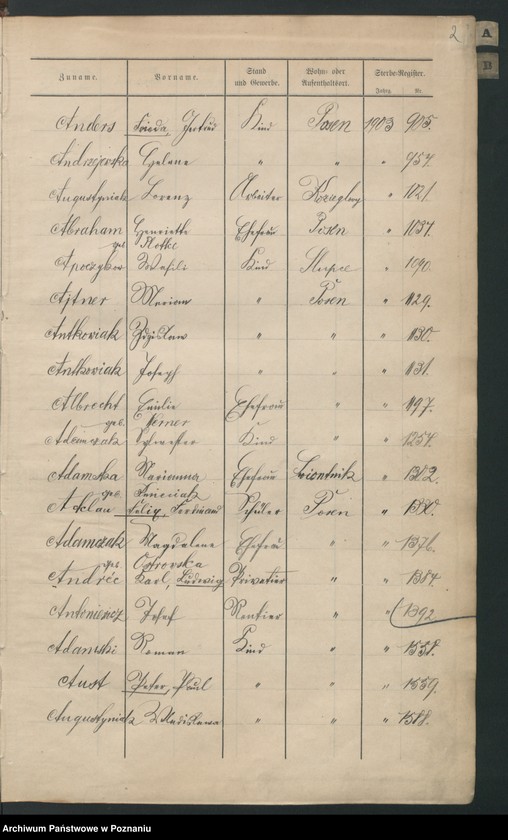 2
A
B
Zuname. Vorname. Stand und Gewerbe. Wohn- oder Aufenthaltsort. Sterbe-Register.
Jahrg. Nr.
Anders Frieda, Gertrud Kind Posen 1903 905.
Andrzejewska Helene " " " 957.
Augustyniak Lorenz Arbeiter " 1021.
Abraham Henriette Ehefrau Posen " 1037.
geb.
Kind " 1090.
Ajtner Marian " Posen " 1129.
Antkowiak Zdzislaw " " " 1130.
Antkowiak Joseph " " " 1131.
Albrecht Emilie Ehefrau " " 1197.
geb. Werner
Adamczak Sylvester Kind " " 1257.
Adamska Marianna Ehefrau " 1302.
geb.
Felix Ferdinand Schüler Posen "
Adamczak Magdalene Ehefrau " " 1376.
geb. Ostrowska
Andrée Karl, Ludwig Privatier " " 1384.
Antoniewicz Josef Rentier " " 1392
Adamski Roman Kind " " 1558.
Aust Peter, Paul " " " 1559.
Augustyniak Wladislawa " " " 1588.
Archiwum Państwowe w Poznaniu